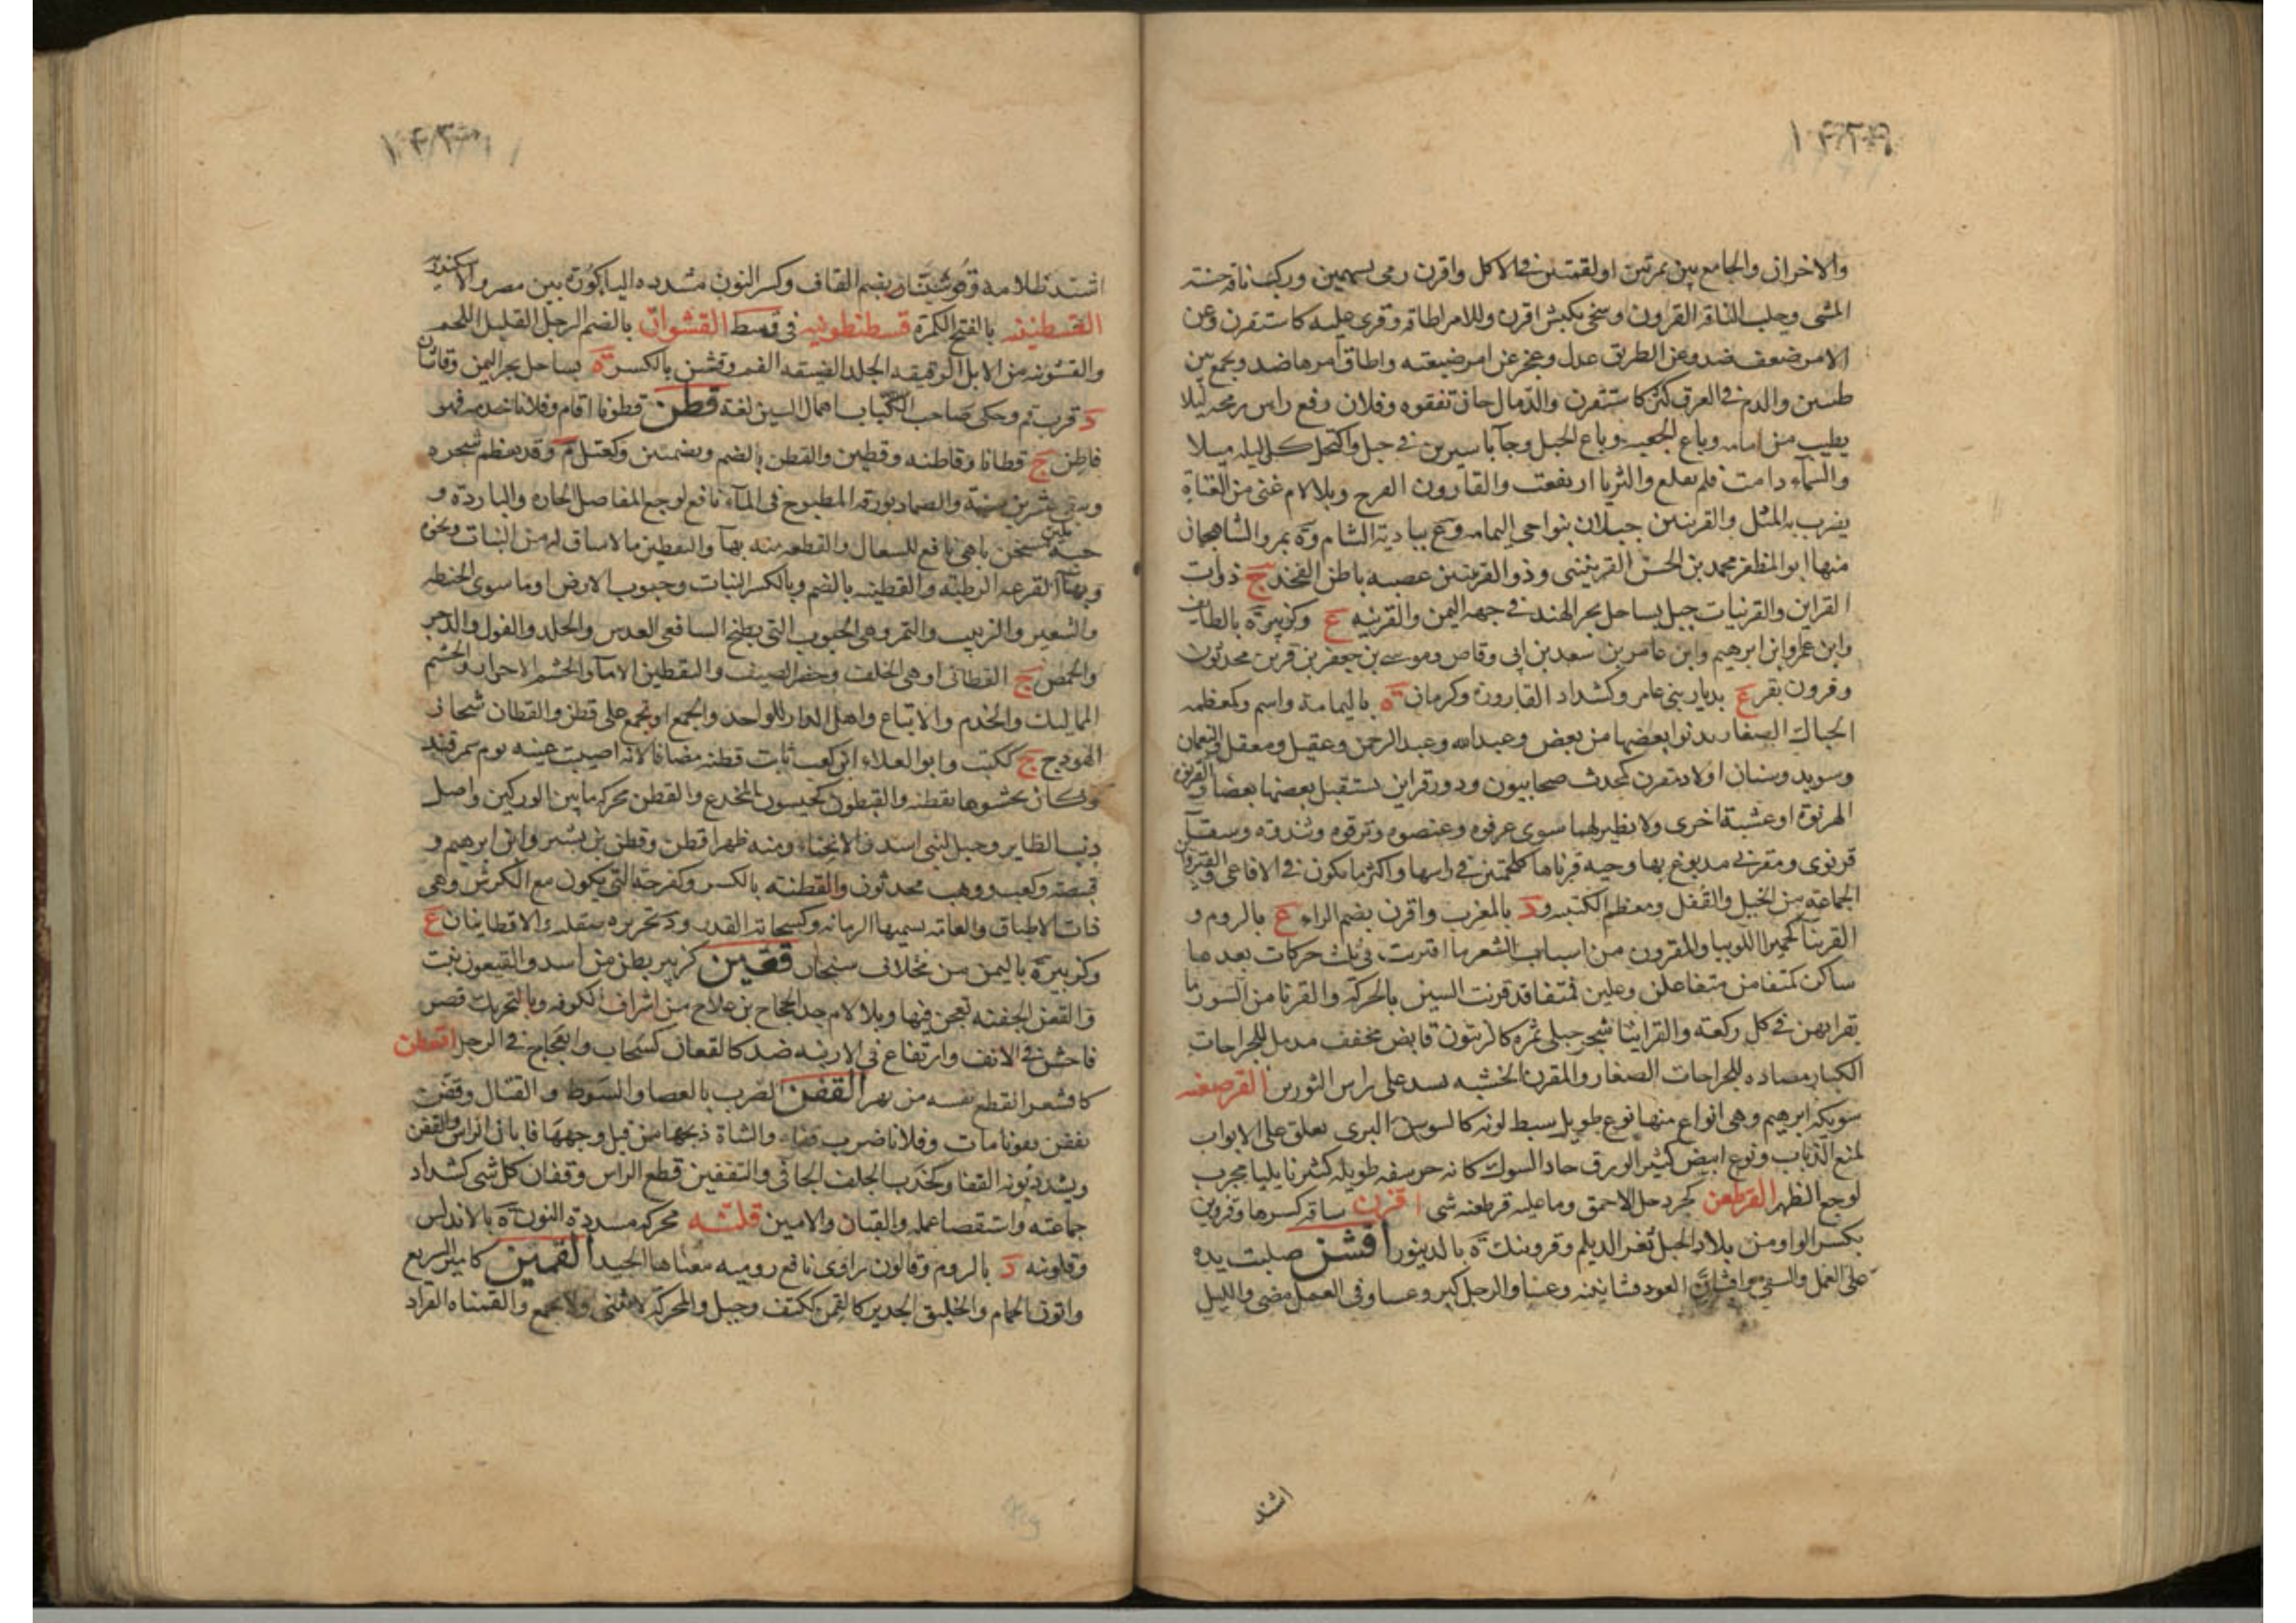 ١٤٢٩
والاخران والجامع بين تمرتين او لقمتين في الاكل واقرن رمى بسهمين وركب ناقة حسنة
المشى وحلب الناقة القرون وضحى بكبش اقرن وللامر اطاقه وقوى عليه كاستقرن وعن
الامر ضعف ضد وعن الطريق عدل وعجز عن امر ضيعته واطاق امرها ضد وجمع بين
طبين والدم في العرق كثر كاستقرن والدمل حان تفقوه وفلان رفع راس رمحه ليلا
يصيب من امامه وباع الجعبه وباع الحبل وجآ باسيرين في حبل واكتحل كل ليله ميلا
والسماء دامت فلم تقلع والثريا ارتفعت والقارون الوج وبلا لام غنى من العتاة
يضرب به المثل والقرنين جبلان بنواحى اليمامه وع ببادية الشام وة بمرو الشاهجان
منها ابو المظفر محمد بن الحسن القرنينى وذو القرنين عصبه باطن الفخذ ج ذوات
القراين والقرنيات جبل بساحل بحر الهند في جهه اليمن والقرينه ع وكزبيره بالطايف
وابن عمر وابن ابرهيم وابن عامر بن سعد بن ابى وقاص وموسى بن جعفر بن قرين محدثون
وقرون بقر ع بديار بنى عامر وكشداد القارورة وكرمان ة باليمامة واسم وكمعظمه
الجبال الصغار يدنو بعضها من بعض وعبد الله وعبد الرحمن وعقيل ومعقل والنعمان
وسويد وسنان اولاد مقرن كمحدث صحابيون ودور قراين يستقبل بعضها بعضا والقرنوه
الهرنوة او عشبة اخرى ولا نظير لهما سوى عرقوه وعنصوه وترقوه وثندوه وسقآ
قرنوى ومقرنى مدبوغ بها وحيه قرناها كلحمتين في راسها واكثر ما يكون في الافاعى والقيروان
الجماعة من الخيل والقفل ومعظم الكتيبه ود بالمغرب واقرن بضم الراء ع بالروم و
القرينآ كحميرا اللوبيا والمقرون من اسباب الشعر ما اقترنت فيه ثلث حركات بعدها
ساكن كمتفا من متفاعلن وعلتن فمتفا قد قرنت السببين بالحركة والقرنا من السور ما
يقرا بهن في كل ركعة والقرانيا شجر جبلى ثمره كالزيتون قابض مجفف مدمل للجراحات
الكبار مضاده للجراحات الصغار والمقرن الخشبه تشد على راس الثورين القرصعنه
شويكة ابرهيم وهى انواع منها نوع طويل سبط لونه كالسوسن البرى يعلق على الابواب
لمنع الذباب ونوع ابيض كثير الورق حاد الشوك كانه حرشفه طويله كشرنا يليا مجرب
لوجع الظهر القرطعن كجردحل الاحمق وما عليه قرطعنه شى اقزن ساقه كسرها وقزوين
بكسر الواو من بلاد الجبل ثغر الديلم وقزوينك ة بالدينور اقشن صلبت يده
على العمل والسقى واقسان العود قسانينه وعسا والرجل كبر وعسا وفى العمل مضى والليل
اشتد
١٤٣٠
اشتد ظلامه وقوشينان بضم القاف وكسر النون مشدده اليا كورة بين مصر والاسكندريه
القسطنينه بالفتح الكمرة قسطنطونيه في قسط القشوان بالضم الرجل القليل اللحم
والقشونه من الابل الرقيقه الجلد الضيقه الفم وقشن بالكسر ة بساحل بحر اليمن وقاشان
د قرب قم وحكى صاحب اللباب اهمال السين لغة قطن قطونا اقام وفلانا خدمه فهو
قاطن ج قطان وقاطنه وقطين والقطن بالضم وبضمتين وكعتل م وقد يعظم شجره
ويبقى عشرين سنة والضماد بورقه المطبوخ في المآء نافع لوجع المفاصل الحاره والبارده و
حبه ملين مسخن باهى نافع للسعال والقطعه منه بهآ واليقطين ما لا ساق له من النبات ونحوه
وبهآ القرعه الرطبه والقطنيه بالضم وبالكسر النبات وحبوب الارض او ما سوى الحنطه
والشعير والزبيب والتمر وهى الحبوب التى تطبخ الشافعى العدس والخلد والفول والدجر
والحمص ج القطانى او هى الخلف وخضر الصيف والقطين الامآ والحشم الاحرار والحشم
المماليك والخدم والاتباع واهل الدار للواحد والجمع او تجمع على قطن والقطان شجار
الهودج ج ككتب وابو العلاء ابن كعب ثابت قطنه مضافا لانه اصيبت عينه يوم سمرقند
وكان يحشوها بقطنه والقيطون كحيسون المخدع والقطن محركة ما بين الوركين واصل
ذنب الطاير وجبل لبنى اسد والانحناء ومنه ظهر اقطن وقطن بن نسير وابن ابرهيم و
قبيصه وكعب ووهب محدثون والقطنه بالكسر وكفرحه التى تكون مع الكرش وهى
ذات الاطباق والعامة تسميها الرمانه وكسحابة القدر ود بجزيره صقليه والاقطانتان ع
وكزبيره باليمن من مخلاف سنحان قعين كزبير بطن من اسد والقيعون نبت
والقعن الجفنه يعجن فيها وبلا لام جد الحجاح بن علاح من اشراف الكوفه وبالتحريك قصر
فاحش في الانف وارتفاع في الارنبه ضد كالقعان كسحاب وانفجاج في الرجل اقعطن
كاقشعر انقطع نفسه من بهر القفن الضرب بالعصا والسوط والقتال وقفن
يقفن قفونا مات وفلانا ضرب قفاه والشاة ذبحها من قبل وجهها فابان الراس والقفن
ويشدد نونه القفا وكخدب الجلف الجافى والتقفين قطع الراس وقفان كل شى كشداد
جماعته واستقصا عمله والقبان والامين قلنه محركه مشددة النون ة بالاندلس
وقلونيه د بالروم وقالون راوى نافع روميه معناها الجيد القمين كامير السريع
واتون الحمام والخليق الجدير كالقمن ككتف وجبل والمحركة لا تثنى ولا تجمع والقمناه القراد